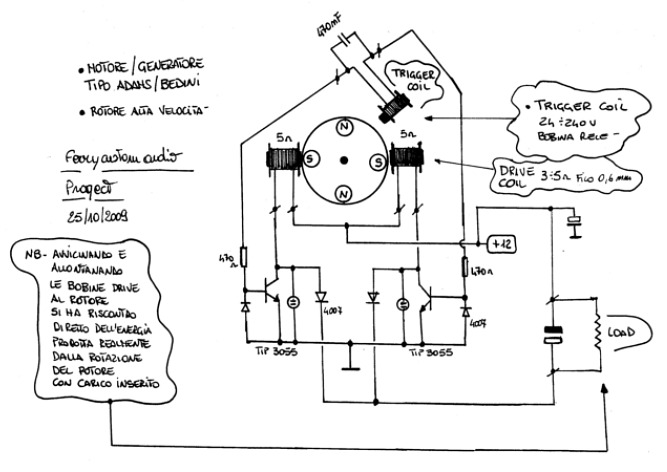 470mF
• MOTORE/GENERATORE
TIPO ADAMS/BEDINI
• ROTORE ALTA VELOCITA-
TRIGGER
COIL
• TRIGGER COIL
24÷240V
BOBINA RELE-
Ferrycustom audio
Progect
25/10/2009
5Ω
5Ω
N
S
S
N
DRIVE 3÷5Ω FILO 0,6mm
COIL
+12
NB- AVVICINANDO E
ALLONTANANDO
LE BOBINE DRIVE
AL ROTORE
SI HA RISCONTRO
DIRETTO DELL'ENERGIA
PRODOTTA REALMENTE
DALLA ROTAZIONE
DEL ROTORE
CON CARICO INSERITO
470
Ω
470Ω
4007
4007
TIP 3055
TIP 3055
LOAD